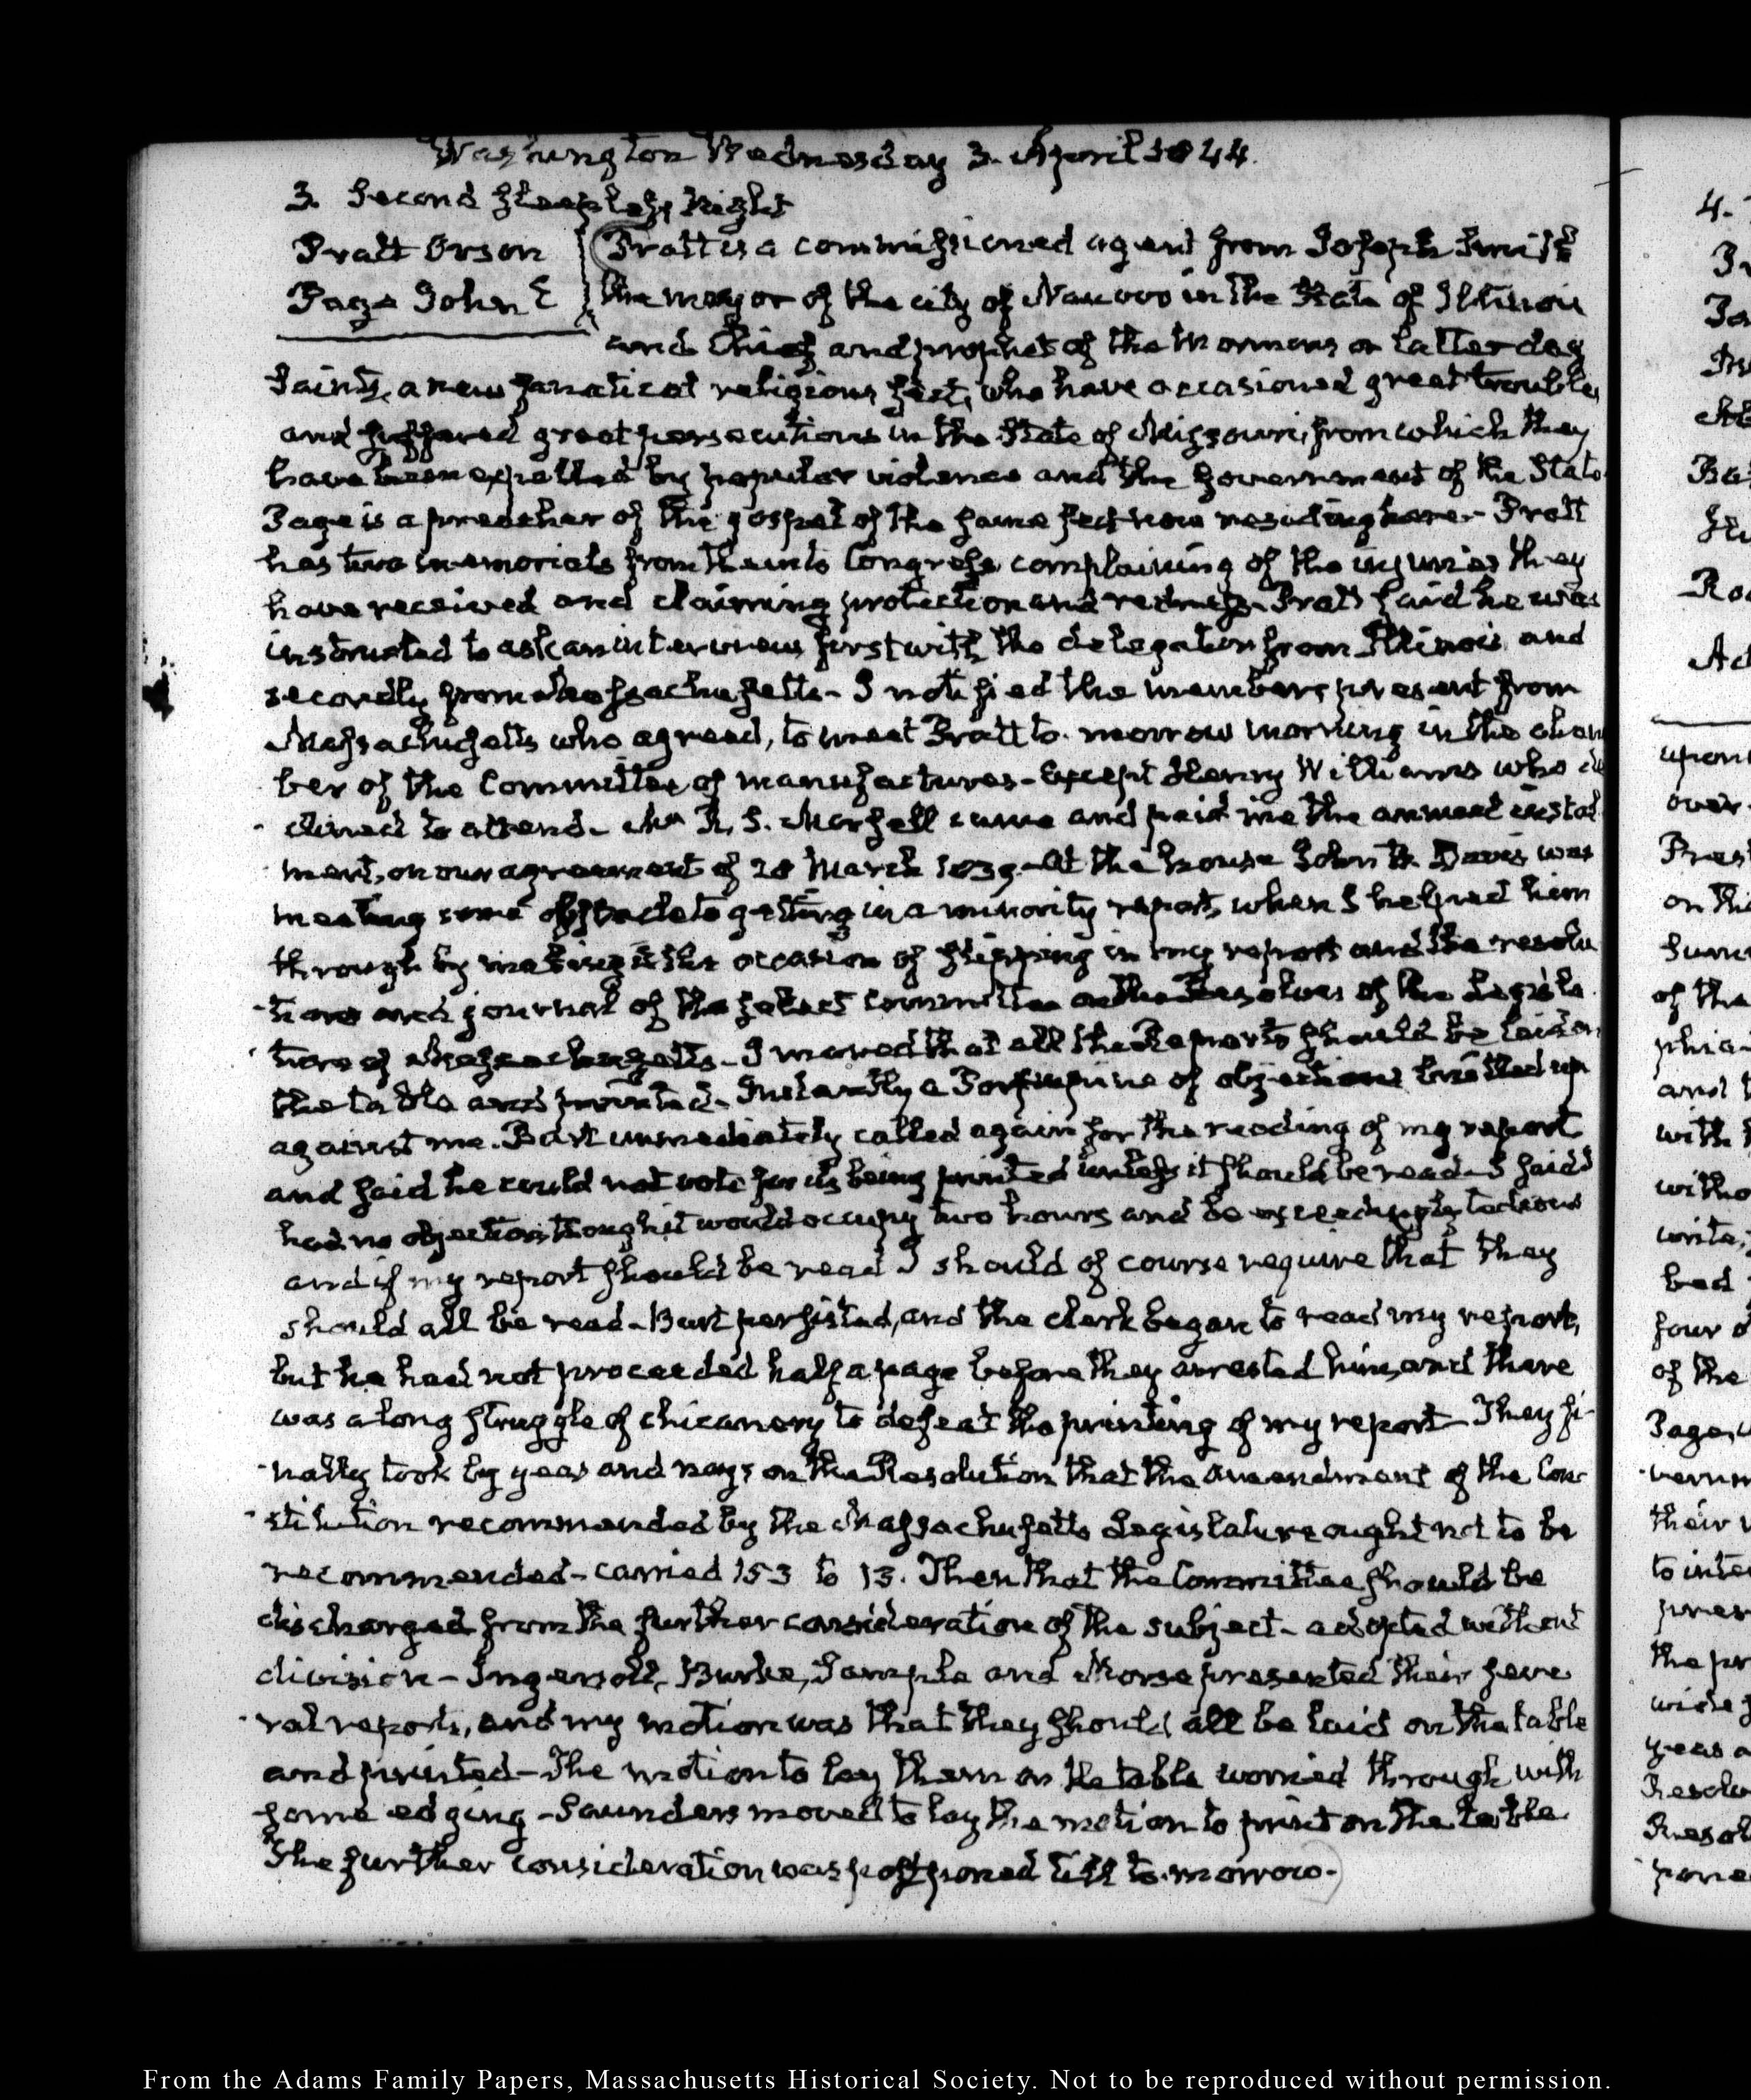 Washington Wednesday 3. April 1844.
3. Second sleepless Night
Pratt Orson
Page John E
Pratt is a commissioned agent from Joseph Smith
the mayor of the city of Nauvoo in the State of Illinois
and Chief and prophet of the Mormons or latter day
Saints, a new fanatical religious sect, who have occasioned great troubles,
and suffered great persecutions in the State of Missouri, from which they
have been expelled by popular violence and the Government of the State
Page is a preacher of the gospel of the same sect now residing here - Pratt
has two memorials from them to Congress complaining of the injuries they
have received and claiming protection and redress. Pratt said he was
instructed to ask an interview first with the delegation from Illinois and
secondly from Massachusetts - I notified the members present from
Massachusetts who agreed, to meet Pratt to-morrow morning in the cham
ber of the Committee of manufactures - Except Henry Williams who de
clined to attend - Mr R. S. Marsell came and paid me the annual instal
ment, on our agreement of 28 March 1839 - At the house John W. Davis was
meeting some obstacle to getting in a minority report, when I helped him
through by making it the occasion of slipping in my report and the resolu
tions and journal of the select committee on the Resolves of the Legisla
ture of Massachusetts - I moved that all the Reports should be laid on
the table and printed - Instantly a Porcupine of objections bristled up
against me. Burt immediately called again for the reading of my report
and said he could not vote for its being printed unless it should be read - I said I
had no objection, though it would occupy two hours and be exceedingly tedious
and if my report should be read I should of course require that they
should all be read - Burt persisted, and the clerk began to read my report,
but he had not proceeded half a page before they arrested him, and there
was a long struggle of chicanery to defeat the printing of my report - They fi-
nally took by yeas and nays on the Resolution that the amendment of the Con-
stitution recommended by the Massachusetts Legislature ought not to be
recommended - carried 153 to 13. Then that the Committee should be
discharged from the further consideration of the subject - adopted without
division - Ingersoll, Burke, Sample and Morse presented their seve
ral reports, and my motion was that they should all be laid on the table
and printed - The motion to lay them on the table worried through with
some edging - Saunders moved to lay the motion to print on the table.
The further consideration was postponed till to-morrow.
4.
upon
over
Pres
on this
of the
phia
and
with
witho
write,
bad
four o
of the
Page,
vernm
their
to inte
the pr
yeas a
Resolu
Resol
pone
From the Adams Family Papers, Massachusetts Historical Society. Not to be reproduced without permission.